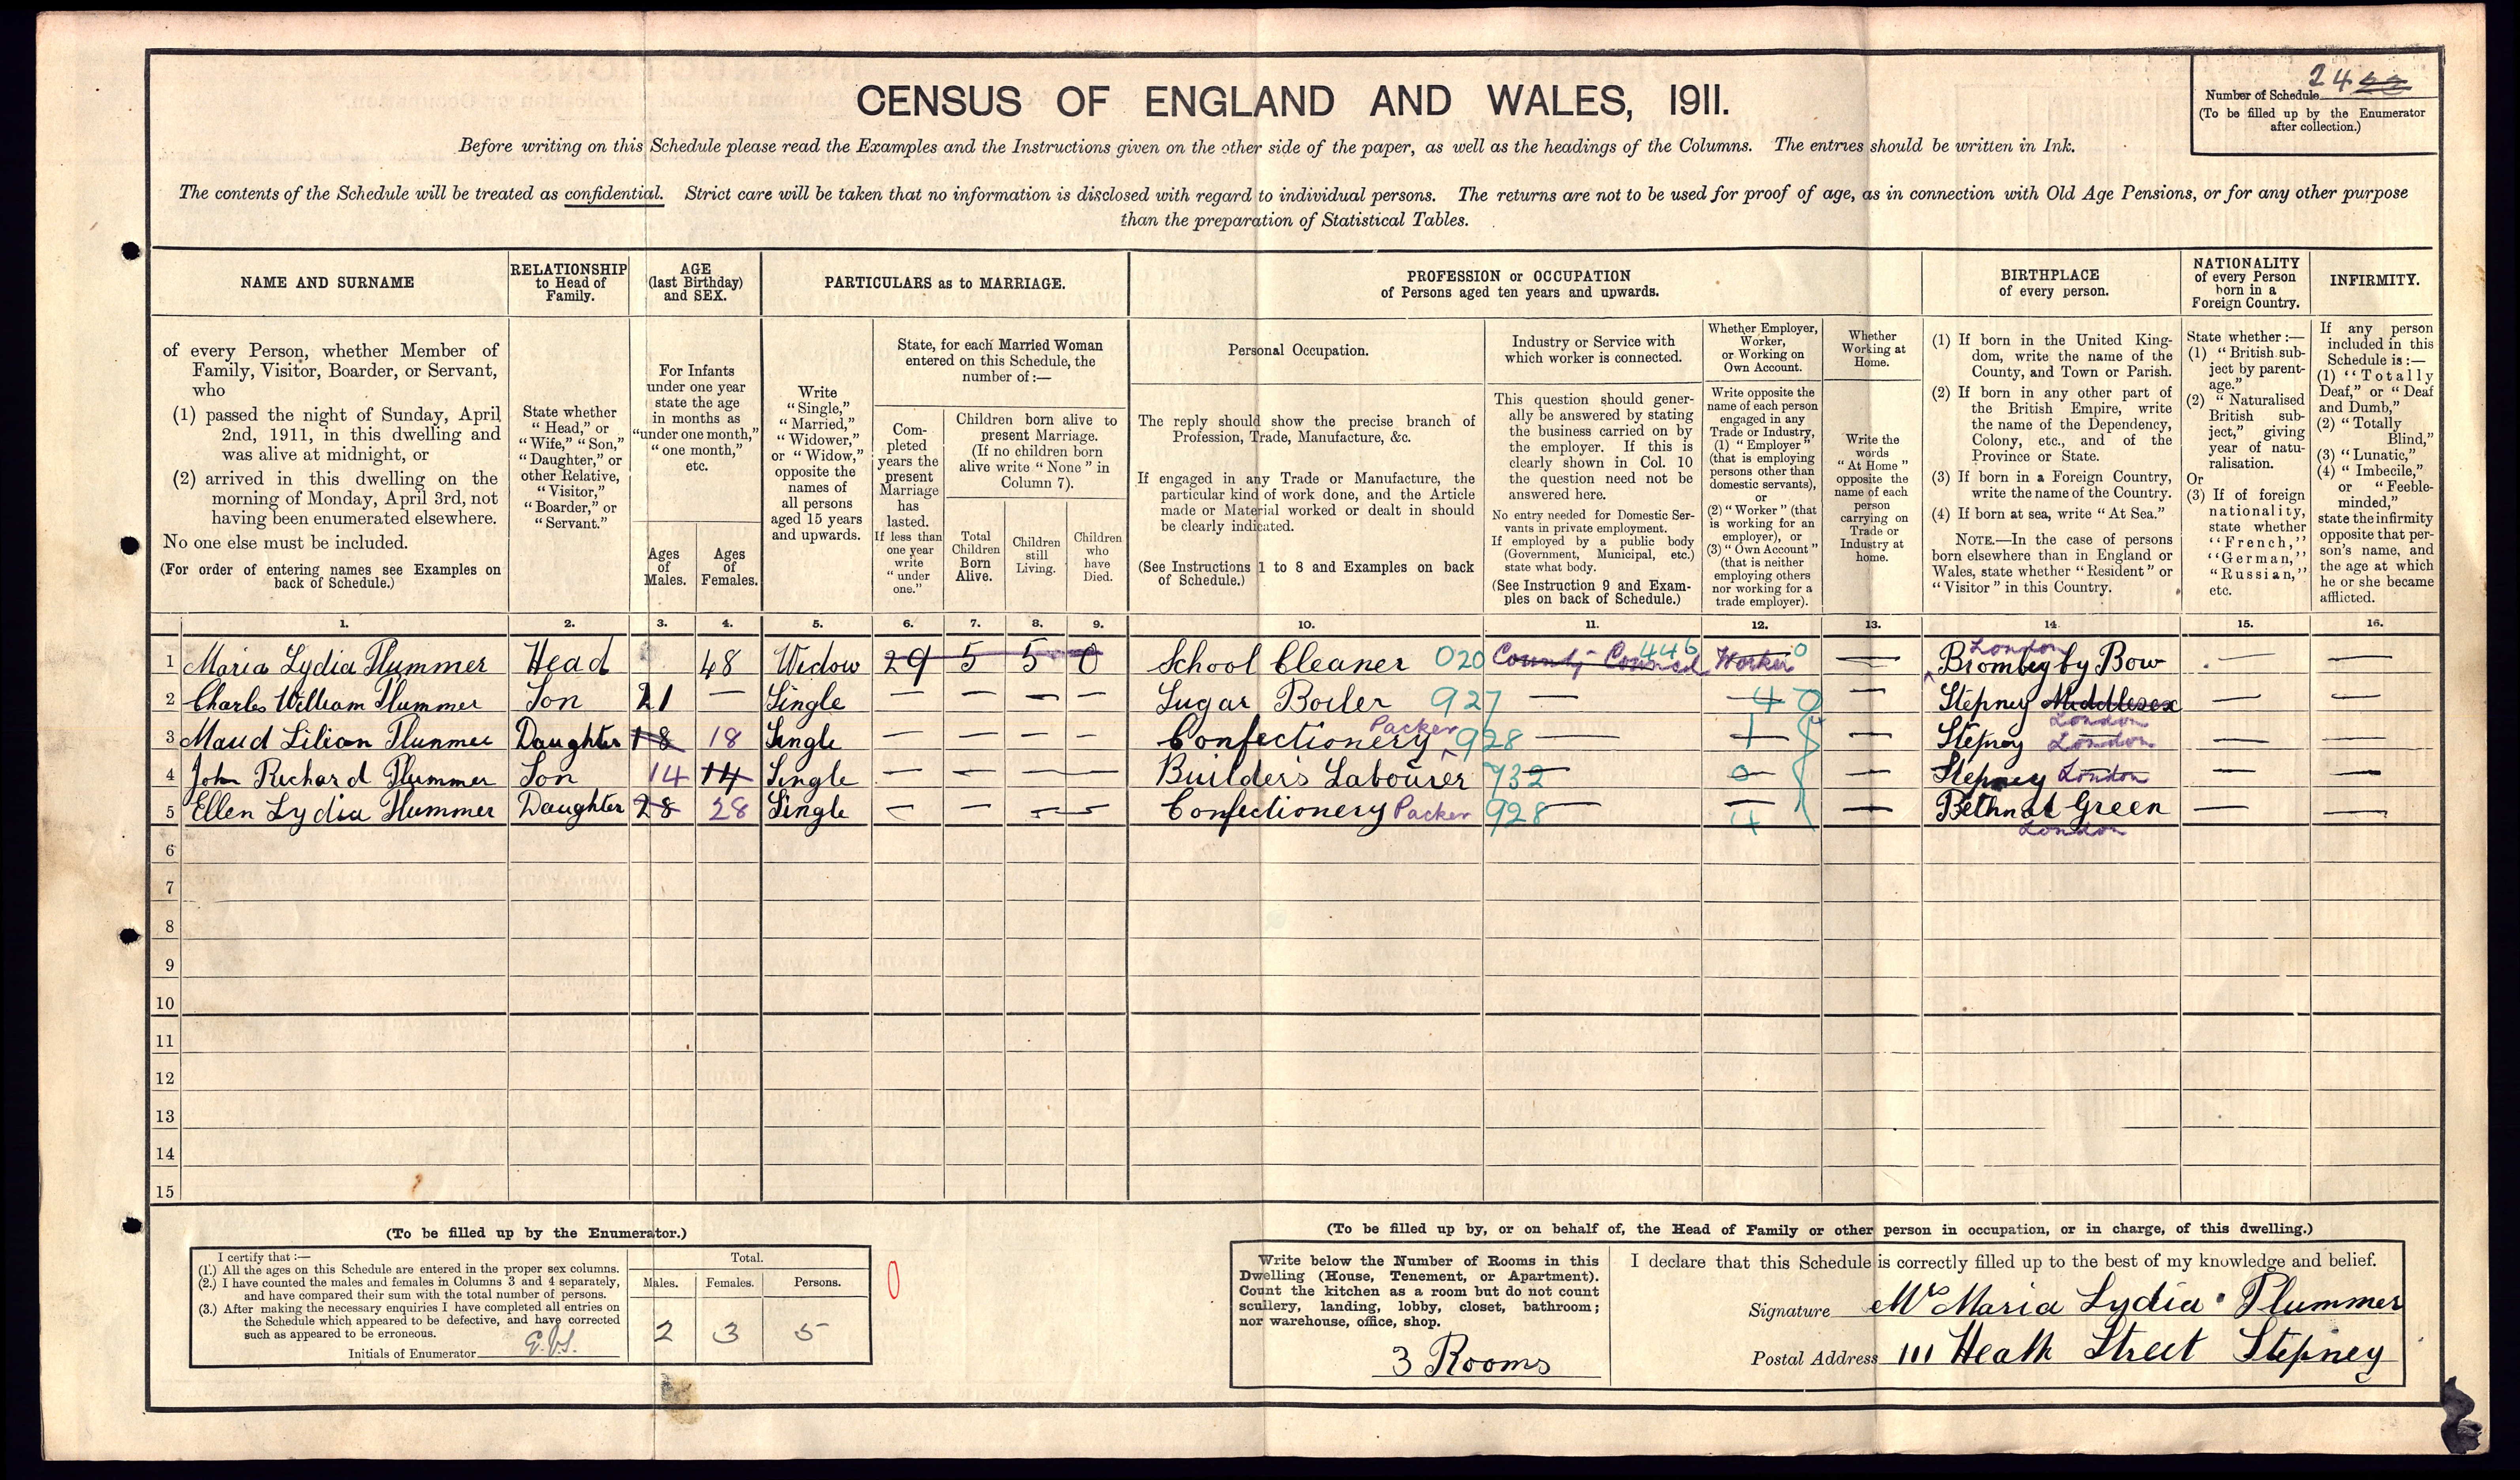 24 22
Number of Schedule
(To be filled up by the Enumerator
after collection.)
CENSUS OF ENGLAND AND WALES, 1911.
Before writing on this Schedule please read the Examples and the Instructions given on the other side of the paper, as well as the headings of the Columns. The entries should be written in Ink.
The contents of the Schedule will be treated as confidential. Strict care will be taken that no information is disclosed with regard to individual persons. The returns are not to be used for proof of age, as in connection with Old Age Pensions, or for any other purpose
than the preparation of Statistical Tables.
NAME AND SURNAME
of every Person, whether Member of
Family, Visitor, Boarder, or Servant,
who
(1) passed the night of Sunday, April
2nd, 1911, in this dwelling and
was alive at midnight, or
(2) arrived in this dwelling on the
morning of Monday, April 3rd, not
having been enumerated elsewhere.
No one else must be included.
(For order of entering names see Examples on
back of Schedule.)
RELATIONSHIP
to Head of
Family.
State whether
"Head," or
"Wife," "Son,"
"Daughter," or
other Relative,
"Visitor,"
"Boarder," or
"Servant."
AGE
(last Birthday)
and SEX.
For Infants
under one year
state the age
in months as
"under one month,"
"one month,"
etc.
Ages
of
Males.
Ages
of
Females.
PARTICULARS as to MARRIAGE.
Write
"Single,"
"Married,"
"Widower,"
or "Widow,"
opposite the
names of
all persons
aged 15 years
and upwards.
State, for each Married Woman
entered on this Schedule, the
number of:—
Com-
pleted
years the
present
Marriage
has
lasted.
If less than
one year
write
"under
one."
Children born alive to
present Marriage.
(If no children born
alive write "None" in
Column 7).
Total
Children
Born
Alive.
Children
still
Living.
Children
who
have
Died.
PROFESSION or OCCUPATION
of Persons aged ten years and upwards.
Personal Occupation.
The reply should show the precise branch of
Profession, Trade, Manufacture, &c.
If engaged in any Trade or Manufacture, the
particular kind of work done, and the Article
made or Material worked or dealt in should
be clearly indicated.
(See Instructions 1 to 8 and Examples on back
of Schedule.)
Industry or Service with
which worker is connected.
This question should gener-
ally be answered by stating
the business carried on by
the employer. If this is
clearly shown in Col. 10
the question need not be
answered here.
No entry needed for Domestic Ser-
vants in private employment.
If employed by a public body
(Government, Municipal, etc.)
state what body.
(See Instruction 9 and Exam-
ples on back of Schedule.)
Whether Employer,
Worker,
or Working on
Own Account.
Write opposite the
name of each person
engaged in any
Trade or Industry,
(1) "Employer"
(that is employing
persons other than
domestic servants),
or
(2) "Worker" (that
is working for an
employer), or
(3) "Own Account"
(that is neither
employing others
nor working for a
trade employer).
Whether
Working at
Home.
Write the
words
"At Home"
opposite the
name of each
person
carrying on
Trade or
Industry at
home.
BIRTHPLACE
of every person.
(1) If born in the United King-
dom, write the name of the
County, and Town or Parish.
(2) If born in any other part of
the British Empire, write
the name of the Dependency,
Colony, etc., and of the
Province or State.
(3) If born in a Foreign Country,
write the name of the Country.
(4) If born at sea, write "At Sea."
NOTE.—In the case of persons
born elsewhere than in England or
Wales, state whether "Resident" or
"Visitor" in this Country.
NATIONALITY
of every Person
born in a
Foreign Country.
State whether :—
(1) "British sub-
ject by parent-
age."
(2) "Naturalised
British sub-
ject," giving
year of natu-
ralisation.
Or
(3) If of foreign
nationality,
state whether
"French,"
"German,"
"Russian,"
etc.
INFIRMITY.
If any person
included in this
Schedule is:—
(1) "Totally
Deaf," or "Deaf
and Dumb,"
(2) "Totally
Blind,"
(3) "Lunatic,"
(4) "Imbecile,"
or "Feeble-
minded,"
state the infirmity
opposite that per-
son's name, and
the age at which
he or she became
afflicted.
1. 2. 3. 4. 5. 6. 7. 8. 9. 10. 11. 12. 13. 14. 15. 16.
1 Maria Lydia Plummer Head 48 Widow 29 5 5 0 School Cleaner 020 County Council 446 Worker 0 — London Bromley by Bow — —
2 Charles William Plummer Son 21 — Single — — — — Sugar Boiler 927 — 4 — Stepney Middlesex London — —
3 Maud Lilian Plummer Daughter 18 18 Single — — — — Confectionery Packer 928 — — — Stepney London — —
4 John Richard Plummer Son 14 14 Single — — — Builder's Labourer 732 — 0 — Stepney London — —
5 Ellen Lydia Plummer Daughter 28 28 Single — — — Confectionery Packer 928 — 4 — Bethnal Green London — —
6
7
8
9
10
11
12
13
14
15
(To be filled up by the Enumerator.)
I certify that :—
(1.) All the ages on this Schedule are entered in the proper sex columns.
(2.) I have counted the males and females in Columns 3 and 4 separately,
and have compared their sum with the total number of persons.
(3.) After making the necessary enquiries I have completed all entries on
the Schedule which appeared to be defective, and have corrected
such as appeared to be erroneous.
Initials of Enumerator
Total.
Males. Females. Persons.
2 3 5
0
(To be filled up by, or on behalf of, the Head of Family or other person in occupation, or in charge, of this dwelling.)
Write below the Number of Rooms in this
Dwelling (House, Tenement, or Apartment).
Count the kitchen as a room but do not count
scullery, landing, lobby, closet, bathroom;
nor warehouse, office, shop.
3 Rooms
I declare that this Schedule is correctly filled up to the best of my knowledge and belief.
Signature Mrs Maria Lydia Plummer
Postal Address 111 Heath Street Stepney